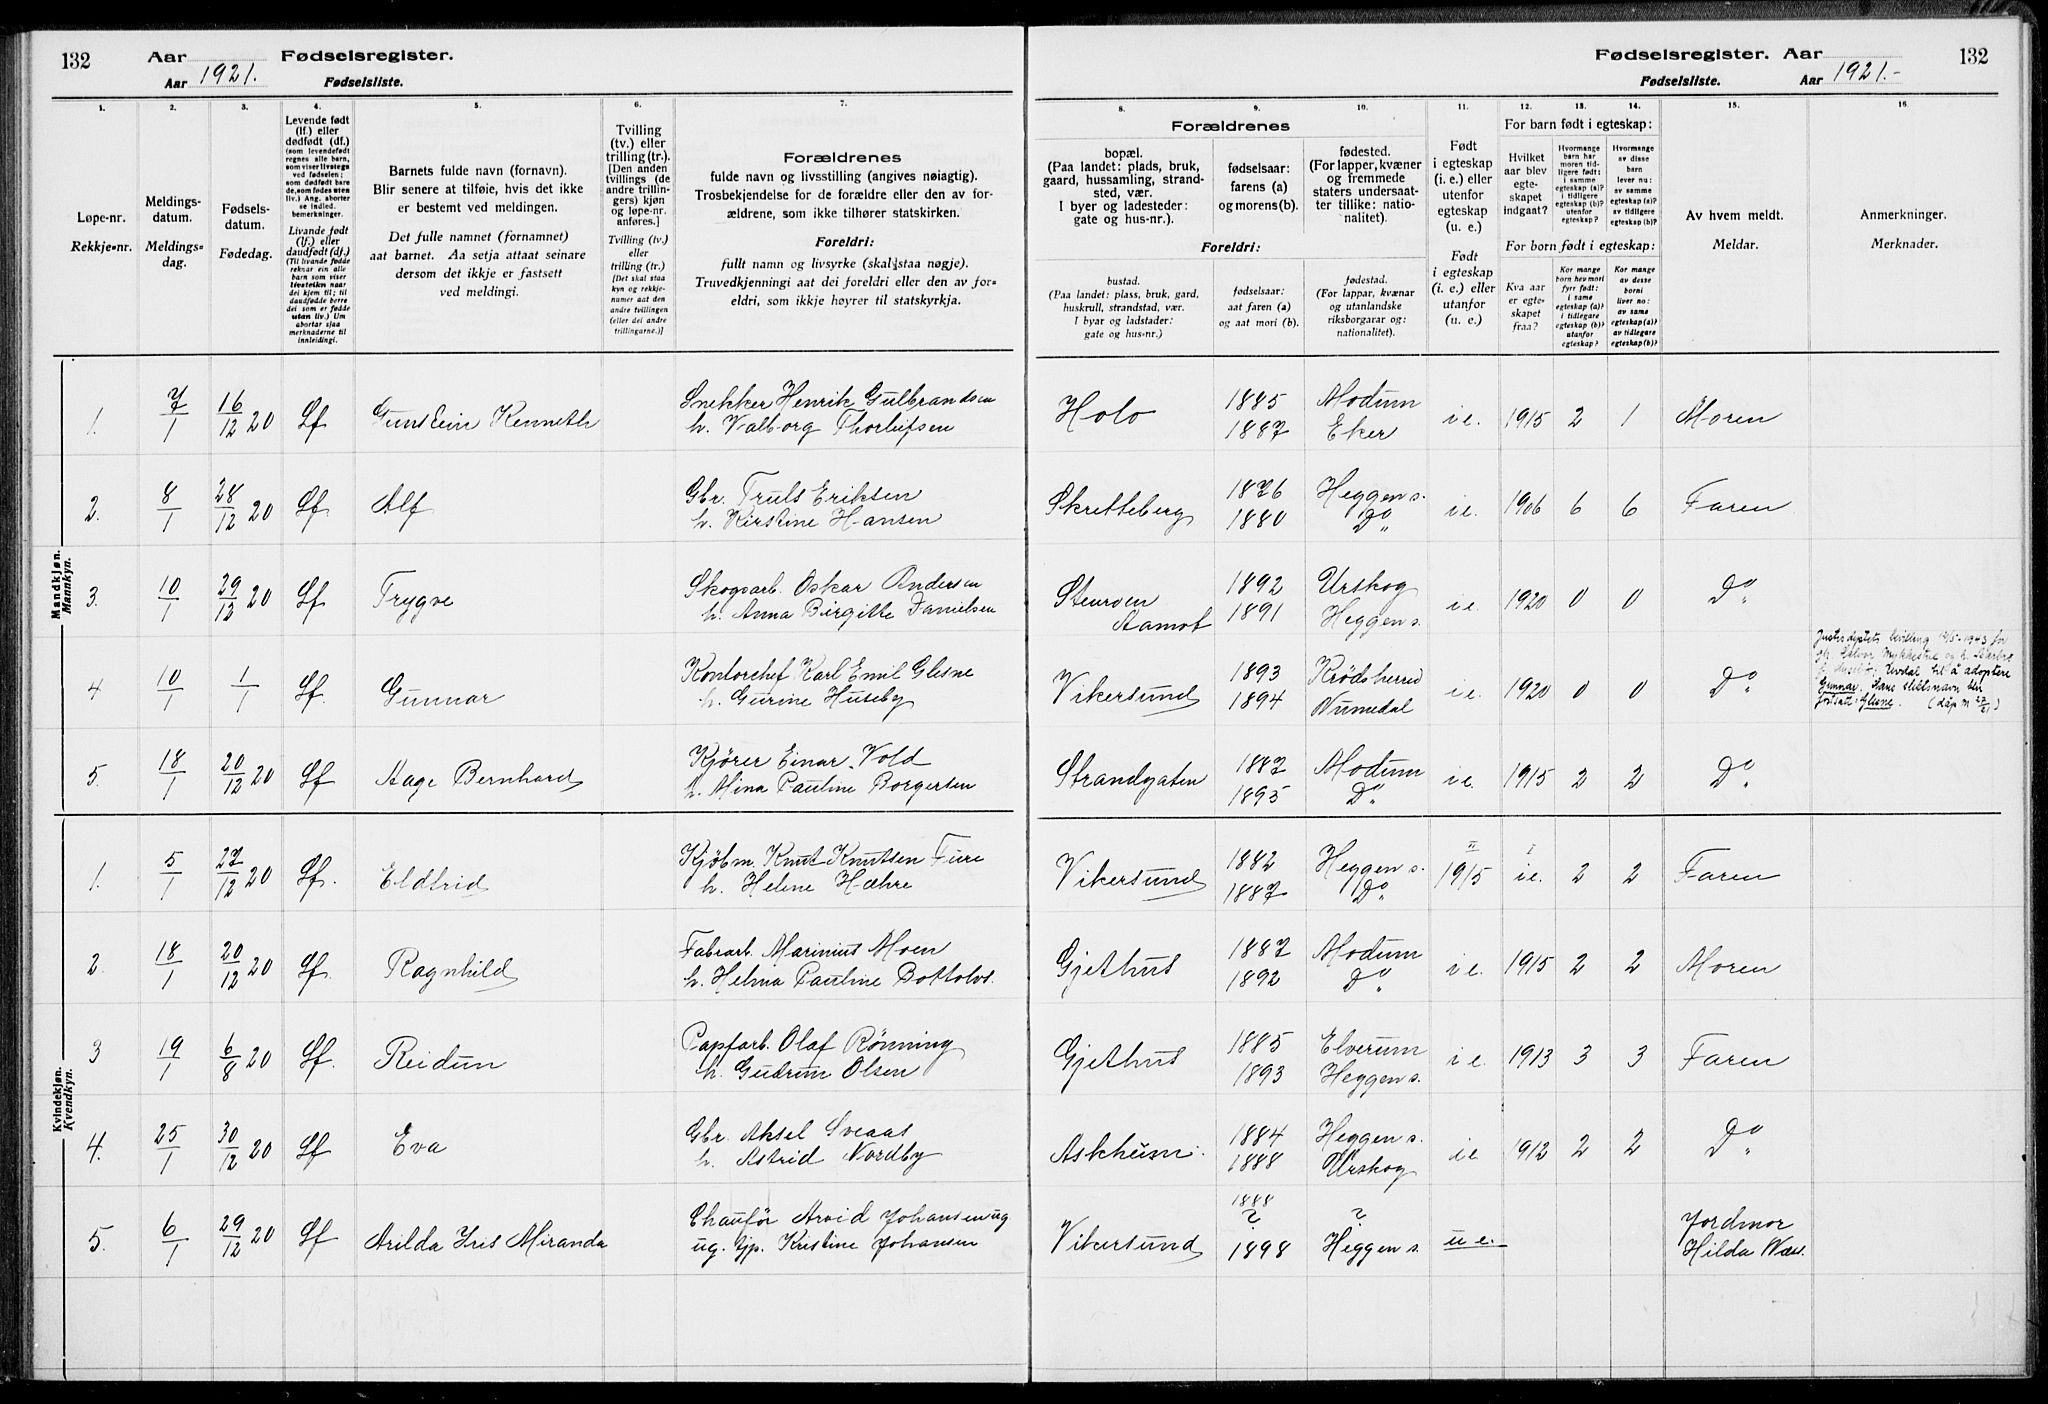 132 Aar Fødselsregister.
Aar 1921. Fødselsliste.
Fødselsregister. Aar 132
Fødselsliste. Aar 1921.-
1. 2. 3. 4. 5. 6. 7. 8. 9. 10. 11. 12. 13. 14. 15. 16.
Løpe-nr.
Rekkje-nr.
Meldings-
datum.
Meldings-
dag.
Fødsels-
datum.
Fødedag.
Levende født
(lf.) eller
dødfødt (df.)
(som levendefødt
regnes alle barn,
som viser livstegn
ved fødselen;
som dødfødt bare
de, som fødes uten
liv.) Ang. aborter
se indled.
bemerkninger.
Livande født
(lf.) eller
daudfødt (df.)
(Til livande fødde
reknar ein alle
born som viser
livsteikn naar
dei kjem til; til
daudfødde berre
dei som er fødde
utan liv.) Um
abortar sjaa
merknaderne til
innleidingi.
Barnets fulde navn (fornavn).
Blir senere at tilføie, hvis det ikke
er bestemt ved meldingen.
Det fulle namnet (fornamnet)
aat barnet. Aa setja attaat seinare
dersom det ikkje er fastsett
ved meldingi.
Tvilling
(tv.) eller
trilling (tr.).
[Den anden
tvillings (de
andre trillin-
gers) kjøn
og løpe-nr.
anføres.]
Tvilling (tv.)
eller
trilling (tr.)
[Det skal staa
kyn og rekkje-
numer aat den
andre tvillingen
(eller dei andre
trillingarne.)]
Forældrenes
fulde navn og livsstilling (angives nøiagtig).
Trosbekjendelse for de forældre eller den av for-
ældrene, som ikke tilhører statskirken.
Foreldri:
fullt namn og livsyrke (skal staa nøgje).
Truvedkjenningi aat dei foreldri eller den av for-
eldri, som ikkje høyrer til statskyrkja.
Forældrenes
bopæl.
(Paa landet: plads, bruk,
gaard, hussamling, strand-
sted, vær.
I byer og ladesteder:
gate og hus-nr.).
fødselsaar:
farens (a)
og morens (b).
fødested.
(For lapper, kvæner
og fremmede
staters undersaat-
ter tillike: natio-
nalitet).
Foreldri:
bustad.
(Paa landet: plass, bruk, gard,
huskrull, strandstad, vær.
I byar og ladstader:
gate og hus-nr.)
fødselsaar:
aat faren (a)
og aat mori (b).
fødestad.
(For lappar, kvænar
og utanlandske
riksborgarar og:
nationalitet).
Født
i egteskap
(i. e.) eller
utenfor
egteskap
(u. e.)
Født
i egteskap
(i. e.) eller
utanfor
(u. e.)
For barn født i egteskap:
Hvilket
aar blev
egte-
skapet
indgaat?
Hvormange
barn har
moren tid-
ligere født:
i samme
egteskap (a)?
i tidligere
egteskap (b)?
utenfor
egteskap?
Hvormange
av disse
barn
lever nu:
av samme
egteskap (a)?
av tidligere
egteskap (b)?
For born født i egteskap:
Kva aar
er egte-
skapet
fraa?
Kor mange
born hev mori
fyrr født:
i same
egteskap (a)?
i tidlegare
egteskap (b)?
utanfor
egteskap?
Kor mange
av desse
borni
liver no:
av same
egteskap (a)?
av tidlegare
egteskap (b)?
Av hvem meldt.
Meldar.
Anmerkninger.
Merknader.
Mandkjøn.
Mannkyn.
1. 7/1 16/12 20 Lf Gunstein Kenneth Snekker Henrik Gulbrandsen Holo 1885 Modum i e. 1915 2 1 Moren
h. Valborg Thorleifsen 1887 Eker
2. 8/1 28/12 20 Lf. Alf Gbr. Truls Eriksen Skretteberg 1876 Heggen s. i e. 1906 6 6 Faren
h. Kirstine Hansen 1880 Do
3. 10/1 29/12 20 Lf Trygve Skogsarb. Oskar Andersen 1892 Urskog i e. 1920 0 0 Do
h. Anna Birgitte Danielsen Aamot 1891 Heggen s.
4 10/1 1/1 Lf. Gunnar Kontorchef Karl Emil Glesne Vikersund 1893 Krødsherred i e. 1920 0 0 Do
h. Gurine Huseby 1894 Numedal
til å adoptere
Gunnar. Hans slektsnavn blir
fortsatt: Glesne.
5. 18/1 20/12 20 Lf Aage Bernhard Kjører Einar Vold Strandgaten 1887 Modum i e. 1915 2 2 Do
h. Mina Pauline Borgersen 1895 Do
Kvindekjøn.
Kvendkyn.
1. 5/1 27/12 20 Lf. Eldfrid Kjøbm. Knut Knutsen Fure Vikersund 1882 Heggen s. II 1915 I i e. 2 2 Faren
h. Helene Hæhre 1887 Do
2. 18/1 20/12 20 Lf. Ragnhild Fabrarb. Marinius Moen Gjethus 1887 Modum i e. 1915 2 2 Moren
h. Helma Pauline Bottolvs. 1892 Do
3 19/1 6/8 20 Lf. Reidun Papfarb. Olaf Rønning Gjethus 1885 Elverum i e. 1913 3 3 Faren
h. Gudrun Olsen 1893 Heggen s.
4. 25/1 30/12 20 Lf Eva Gbr. Aksel Sveaas Askheim 1884 Heggen s. i e. 1912 2 2 Do
h. Astrid Nordby 1888 Urskog
5. 6/1 29/12 20 Lf Arilda Iris Miranda Chaufør Arvid Johansen ug. Vikersund 1888 ? ? u e. Jordmor
ug. tjp. Kristine Johansen 1898 Heggen s. Hilda